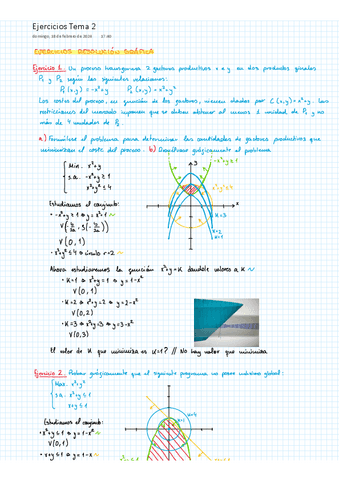 Ejercicios Tema 2
domingo, 18 de febrero de 2024 17:40
EJERCICIOS RESOLUCIÓN GRÁFICA
Ejercicio 1. Un proceso transforma 2 factores productivos x e y en dos productos finales
P₁ y P₂ según las siguientes relaciones:
P₁(x,y) = -x²+y P₂(x,y) = x²+y²
Los costes del proceso, en función de los factores, vienen dados por C(x,y) = x²+y. Las
restricciones del mercado imponen que se deben obtener al menos 1 unidad de P₁ y no
más de 4 unidades de P₂.
a) Formular el problema para determinar las cantidades de factores productivos que
minimizan el coste del proceso. b) Resolver gráficamente el problema
Min. x²+y
s.a. -x²+y ≥ 1
x²+y² ≤ 4
-x²+y ≥ 1
x²+y² ≤ 4
x
K=3
K=2
K=1
Estudiamos el conjunto:
· -x²+y ≥ 1 ⇔ y = x²+1
V(0,1)
· x²+y² ≤ 4 → círculo r=2
Ahora estudiaremos la función x²+y = K dándole valores a K
· K=1 ⇒ x²+y=1 ⇔ y=1-x²
V(0,1)
· K=2 ⇒ x²+y=2 ⇔ y=2-x²
V(0,2)
· K=3 ⇒ x²+y=3 ⇔ y=3-x²
V(0,3)
El valor de K que minimiza es K=1? // No hay valor que minimiza
Ejercicio 2. Probar gráficamente que el siguiente programa no posee máximo global:
Max. x²+y²
s.a. x²+y ≤ 1
x+y ≤ 1
Estudiamos el conjunto:
· x²+y ≤ 1 ⇔ y=1-x²
V(0,1)
· x+y ≤ 1 ⇔ y=1-x
K=4
K=1
x²+y ≤ 1